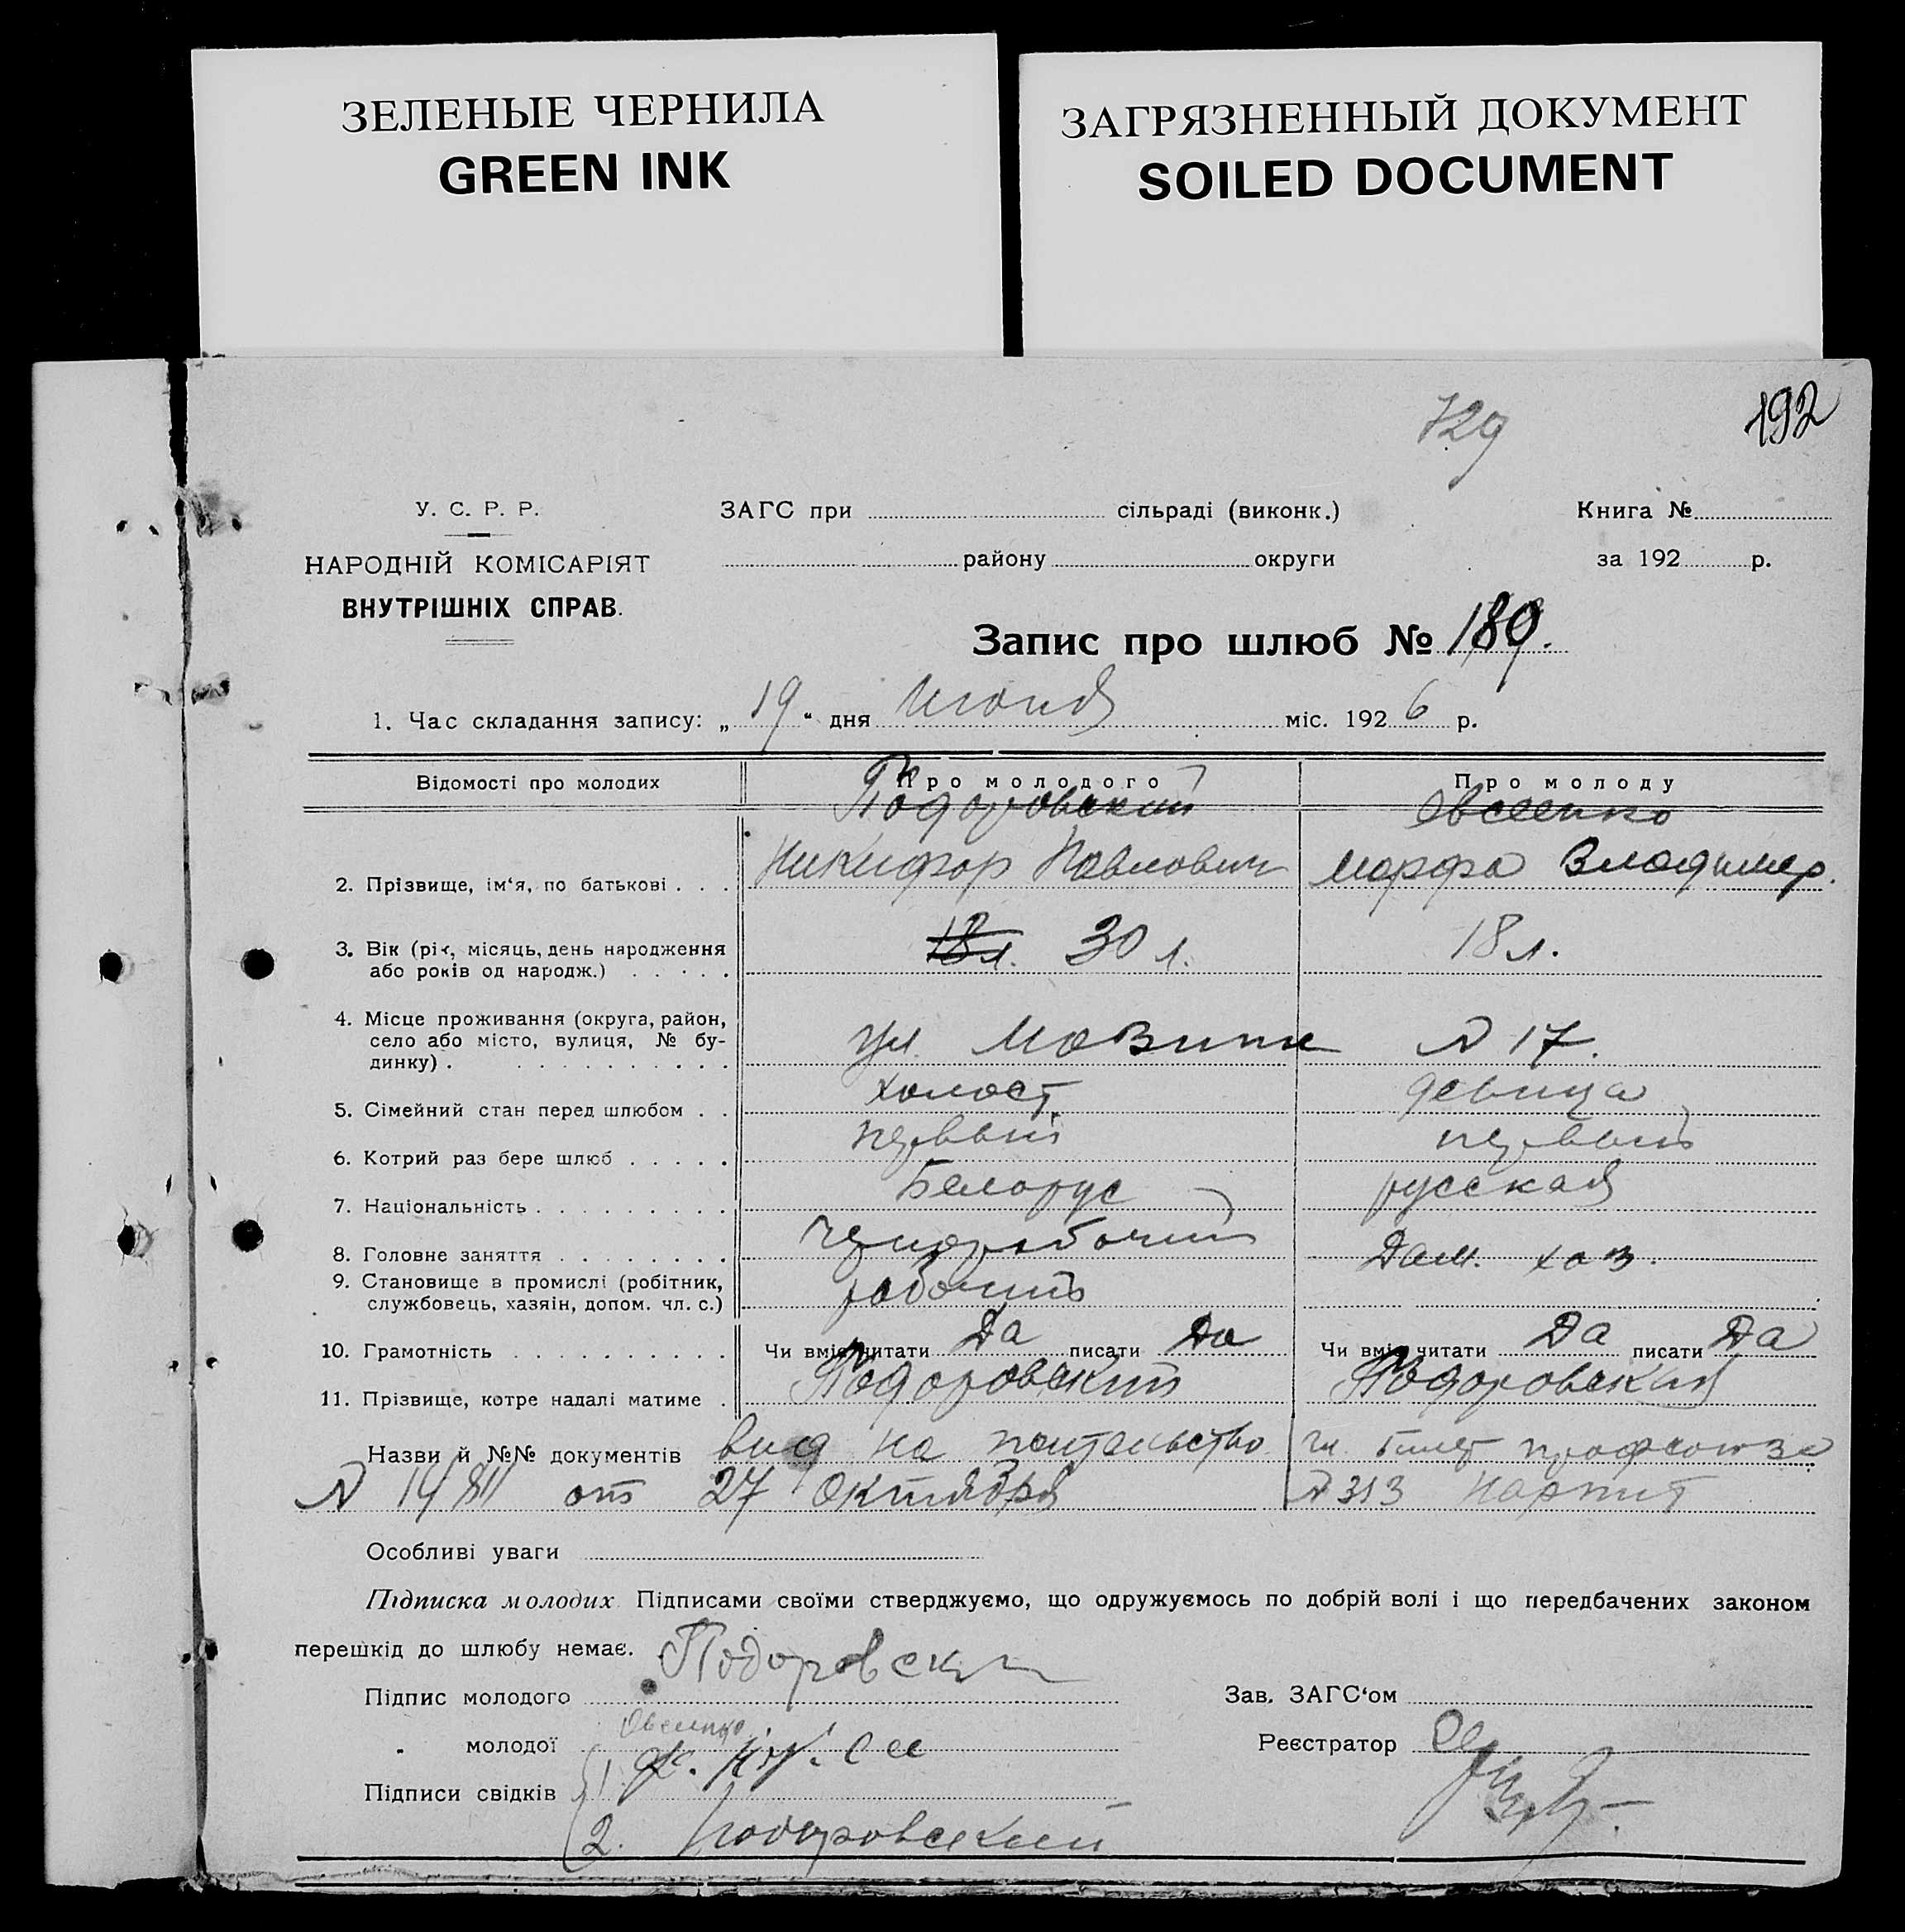 ЗЕЛЕНЫЕ ЧЕРНИЛА
GREEN INK
ЗАГРЯЗНЕННЫЙ ДОКУМЕНТ
SOILED DOCUMENT
729
192
У. С. Р. Р.
НАРОДНІЙ КОМІСАРІЯТ
ВНУТРІШНІХ СПРАВ.
ЗАГС при сільраді (виконк.)
району округи
Книга №
за 192 р.
Запис про шлюб № 189.
1. Час складання запису: „ 19 “ дня Июня міс. 192 6 р.
Відомості про молодих Про молодого Про молоду
Подоровский Овсеенко
2. Прізвище, ім‘я, по батькові . . . Никифор Павлович Марфа Владимир.
3. Вік (рік, місяць, день народження
або років од народж.) . . . . . 18 л. 30 л. 18 л.
4. Місце проживання (округа, район,
село або місто, вулиця, № бу-
динку) . . . . . . . . . . . ул. № 17.
5. Сімейний стан перед шлюбом . . холост девица
6. Котрий раз бере шлюб . . . . . первый первый
7. Національність . . . . . . . . . Белорус русская
8. Головне заняття . . . . . . . . чернорабочий Дом. хоз.
9. Становище в промислі (робітник,
службовець, хазяін, допом. чл. с.) рабочий
10. Грамотність . . . . . . . . . . Чи вміє читати Да писати Да Чи вміє читати Да писати Да
11. Прізвище, котре надалі матиме . Подоровский Подоровская
Назви й №№ документів вид на жительство чл. билет профсоюза
№ 14811 от 27 Октября № 313 Нарпит
Особливі уваги
Підписка молодих Підписами своїми стверджуємо, що одружуємось по добрій волі і що передбачених законом
перешкід до шлюбу немає.
Підпис молодого Подоровский
„ молодої Овсеенко
Підписи свідків 1.
2. Подоровский
Зав. ЗАГС‘ом
Реєстратор